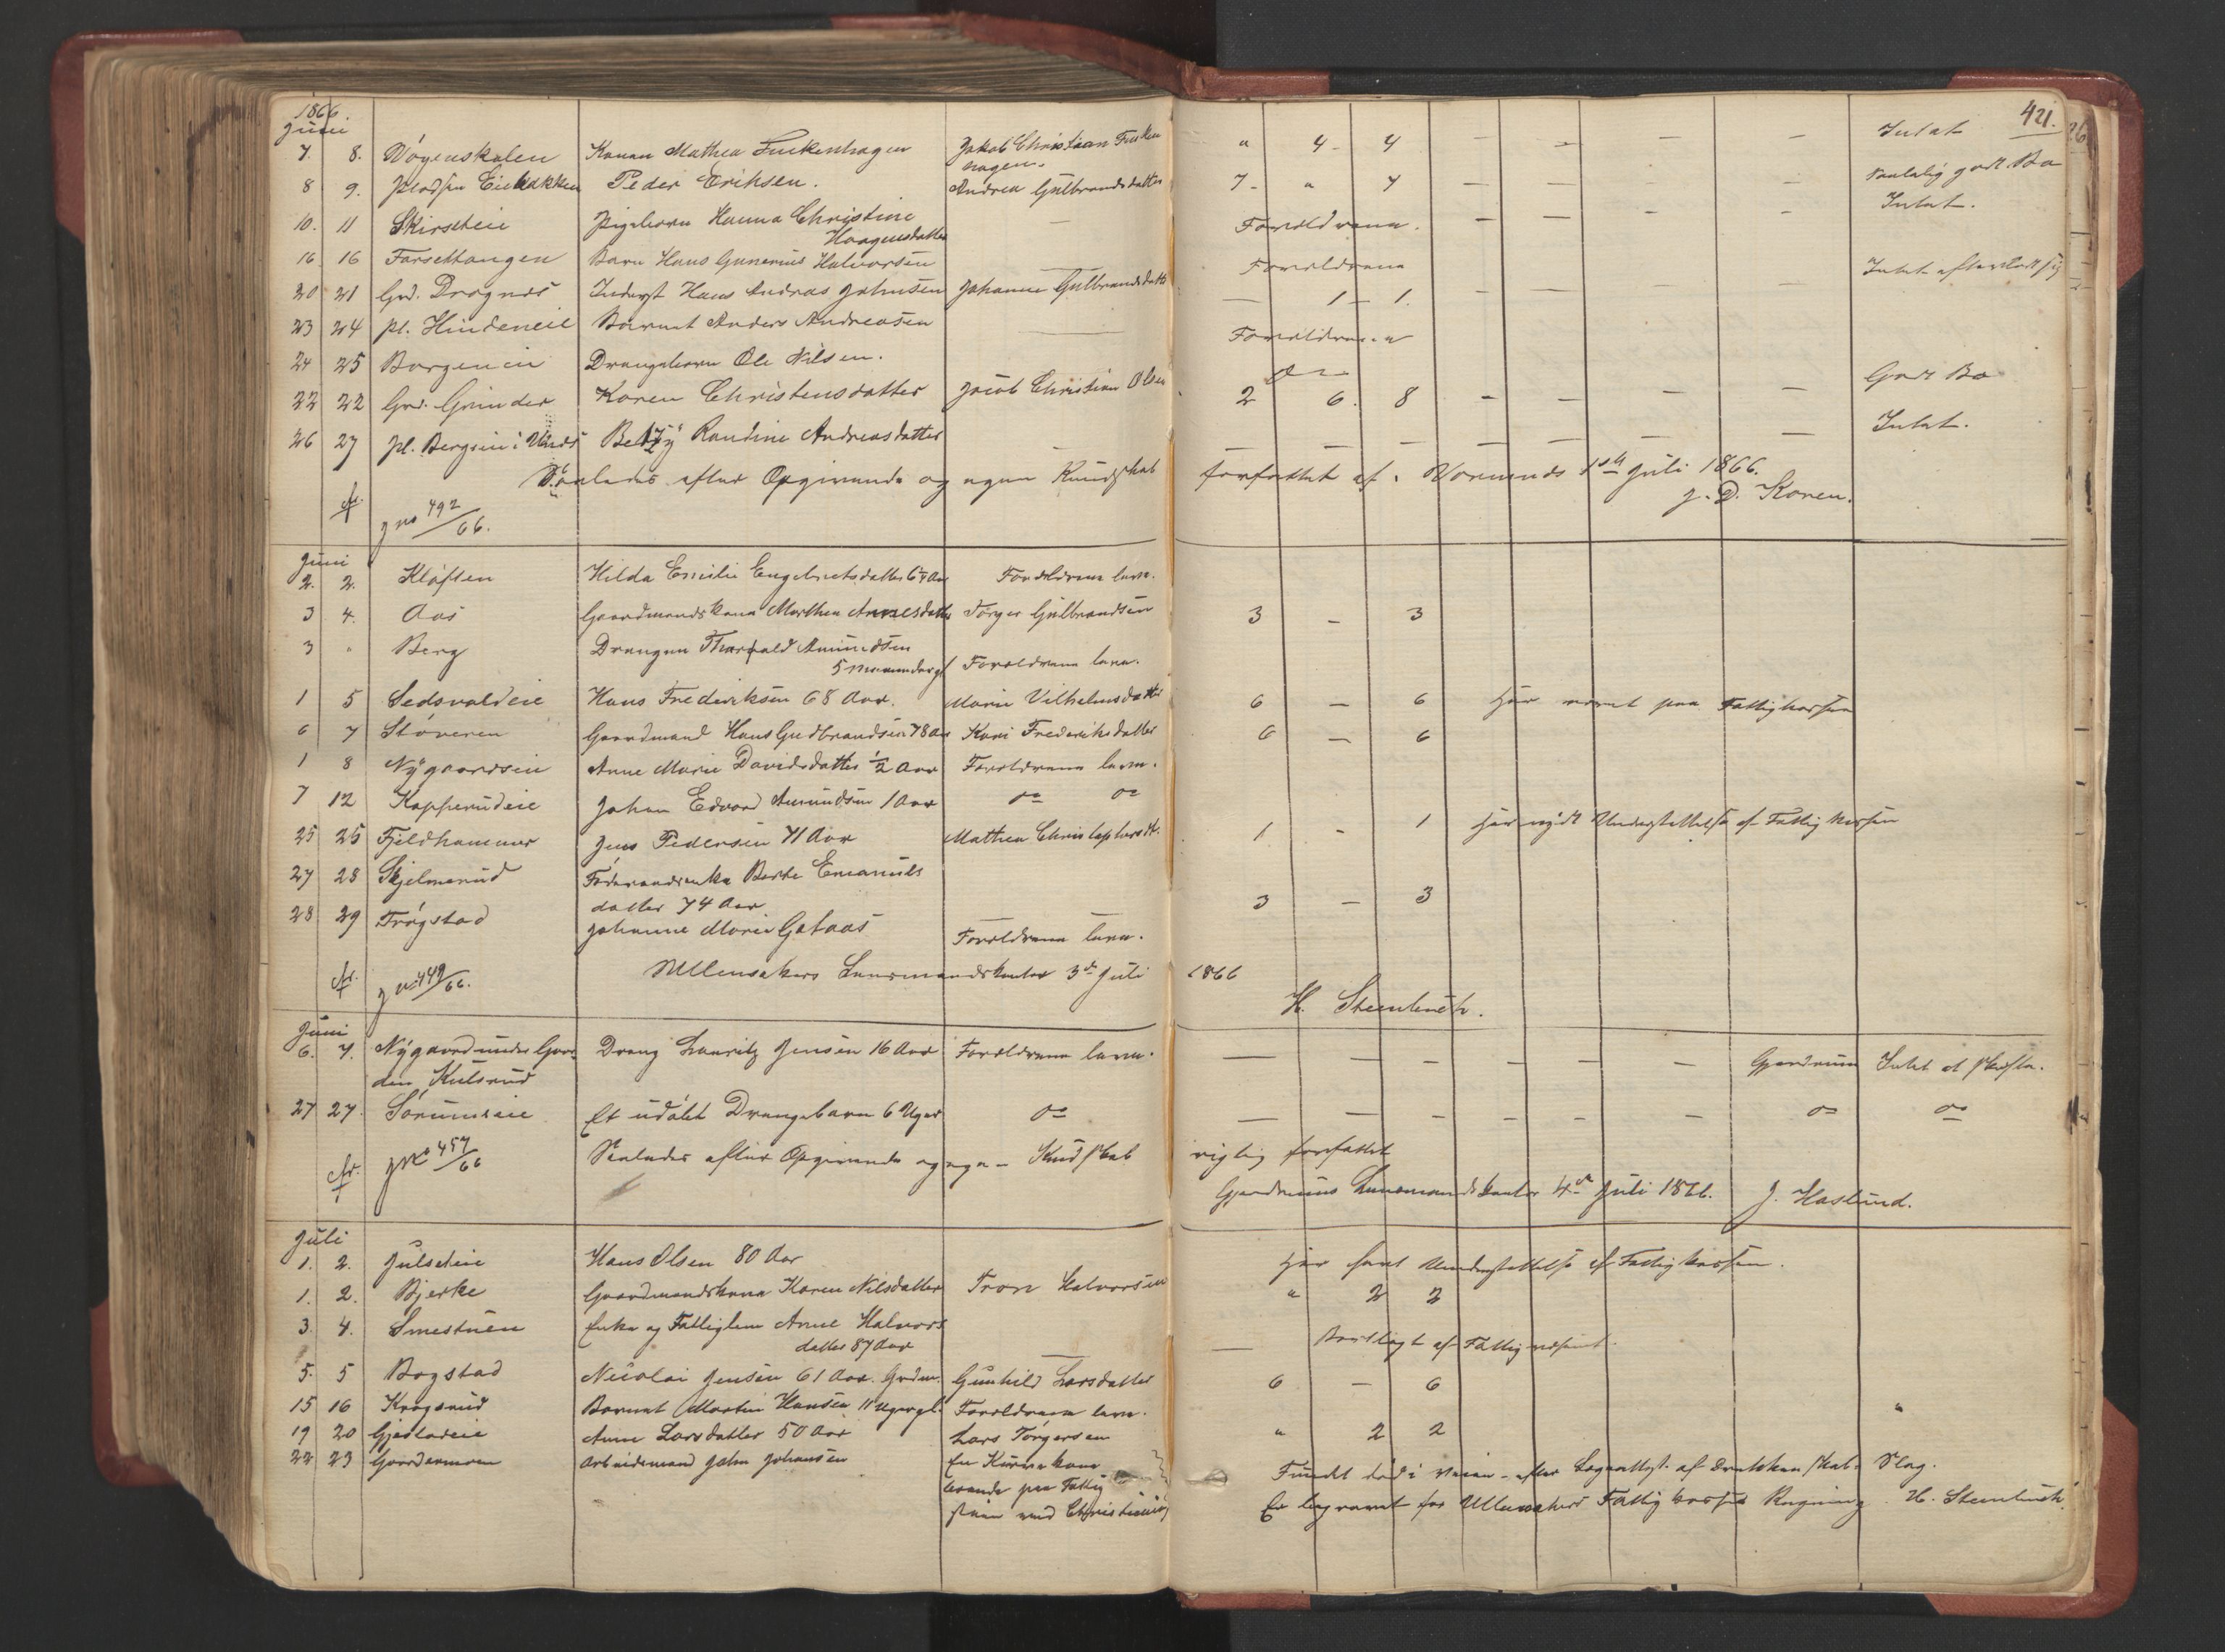 1866.
421.
Juni
7. 8. Vøyenskalen Konen Mathea Finckenhagen Jakob Christian Fincken " 4 - 4 — — — — Intet
hagen.
8 9. Pladsen Peder Eriksen. Andrea Gulbrandsdatter 7 - " 7 — — — — godt Bo
10. 11 Skirstteie Pigebarn Hanna Christine — Forældrene. — — — — Intet.
Haagensdatter
16. 16 Farsettangen Barn Hans Gunerius Halvorsen — Forældrene
20 21 Grd. Dragnes Inderst Hans Andreas Johnsen Johanne Gulbrandsdatter — 1 - 1. — — — — Intet efterladt sig
23 24 Pl. Hindeneie Barnet Anders Andreasen — Forældrene
24 25 Borgeneie Drengebarn Ole Nilsen. do
22 22 Grd. Grinder Karen Christensdatter Jacob Christian Olsen 2 6. 8 — — — — Godt Bo
26 27 Pl. Bergseie i Randine Andreasdatter — — — — — — — Intet.
Saaledes efter Opgivende og egen Kundskab forfattet af. Vormnes 1ste Juli 1866.
J. D. Koren.
cfr. Jno 492/66.
Juni
2. 2. Kløften Hilda Emilie Engebretsdatter Forældrene leve.
3 4. Aas Gaardmandskone Marthea Annesdatter Torger Gulbrandsen 3 — 3
3 " Berg Drengen Thorvald Amundsen
5 Maaneder gl Forældrene leve.
1 5 Sedsvoldeie Hans Frederiksen 68 Aar. Marie Vilhelmsdatter 6 — 6 Har været paa Fattigkassen
6 7 Støveren Gaardmand Hans Gudbrandsen 78 Aar Kari Frederiksdatter 6 — 6
1 8 Nygaardseie Anne Marie Davidsdatter 1/2 Aar Forældrene leve.
7 12 Kopperudeie Johan Edvard Amundsen 1 Aar do do
25 25 Fjeldhammer Jens Pedersen 71 Aar Mathea Christophersdt. 1 - 1 Har nydt Understøttelse af Fattigkassen
27 28 Skjelmerud Føderaadsenke Berthe Emanuels
datter 74 Aar 3 — 3
28 29 Frøgstad Johanne Marie Gataas Forældrene leve.
cfr. Jno 449/66. Ullensakers Lensmandskontor 3die Juli 1866
H. Steenbuch.
Juni
6. 7. Nygaard under Gaar- Dreng Lauritz Jensen 16 Aar Forældrene leve. — — — — — — Gjerdrum Intet at skifte.
den Kulsrud
27 27. Sørumseie Et udøbt Drengebarn 6 Uger do — — — — — — do do
cfr. Jno 457/66 Saaledes efter Opgivende og egen Kundskab rigtig forfattet
Gjerdrums Lensmandskontor 4de Juli 1866. J. Haslund.
Juli
1. 2. Julseteie Hans Olsen 80 Aar Har havt Understøttelse af Fattigkassen.
1. 2. Bjerke Gaardmandskone Karen Nilsdatter Tron Halvorsen " 2 2
3. 4. Smestuen Enke og Fattiglem Anne Halvors
datter 87 Aar — Bortlagt af Fattigvæsenet.
5. 5 Bogstad Nicolai Jensen 61 Aar. Grdm. Gunhild Larsdatter 6 — 6
15 16 Krogsrud Barnet Martin Hansen 11 Uger gl. Forældrene leve. "
19 20 Gjestadeie Anne Larsdatter 50 Aar Lars Torgersen " 2 2
22 23 Gardermoen Arbeidsmand John Johansen En Kone Fundet død i Veien - efter Lægeattest af Drukkenskab - Slag.
boende paa Fattig
stuen ved Christiania Er begravet for Ullensakers Fattigkasses Regning. H. Steenbuch.